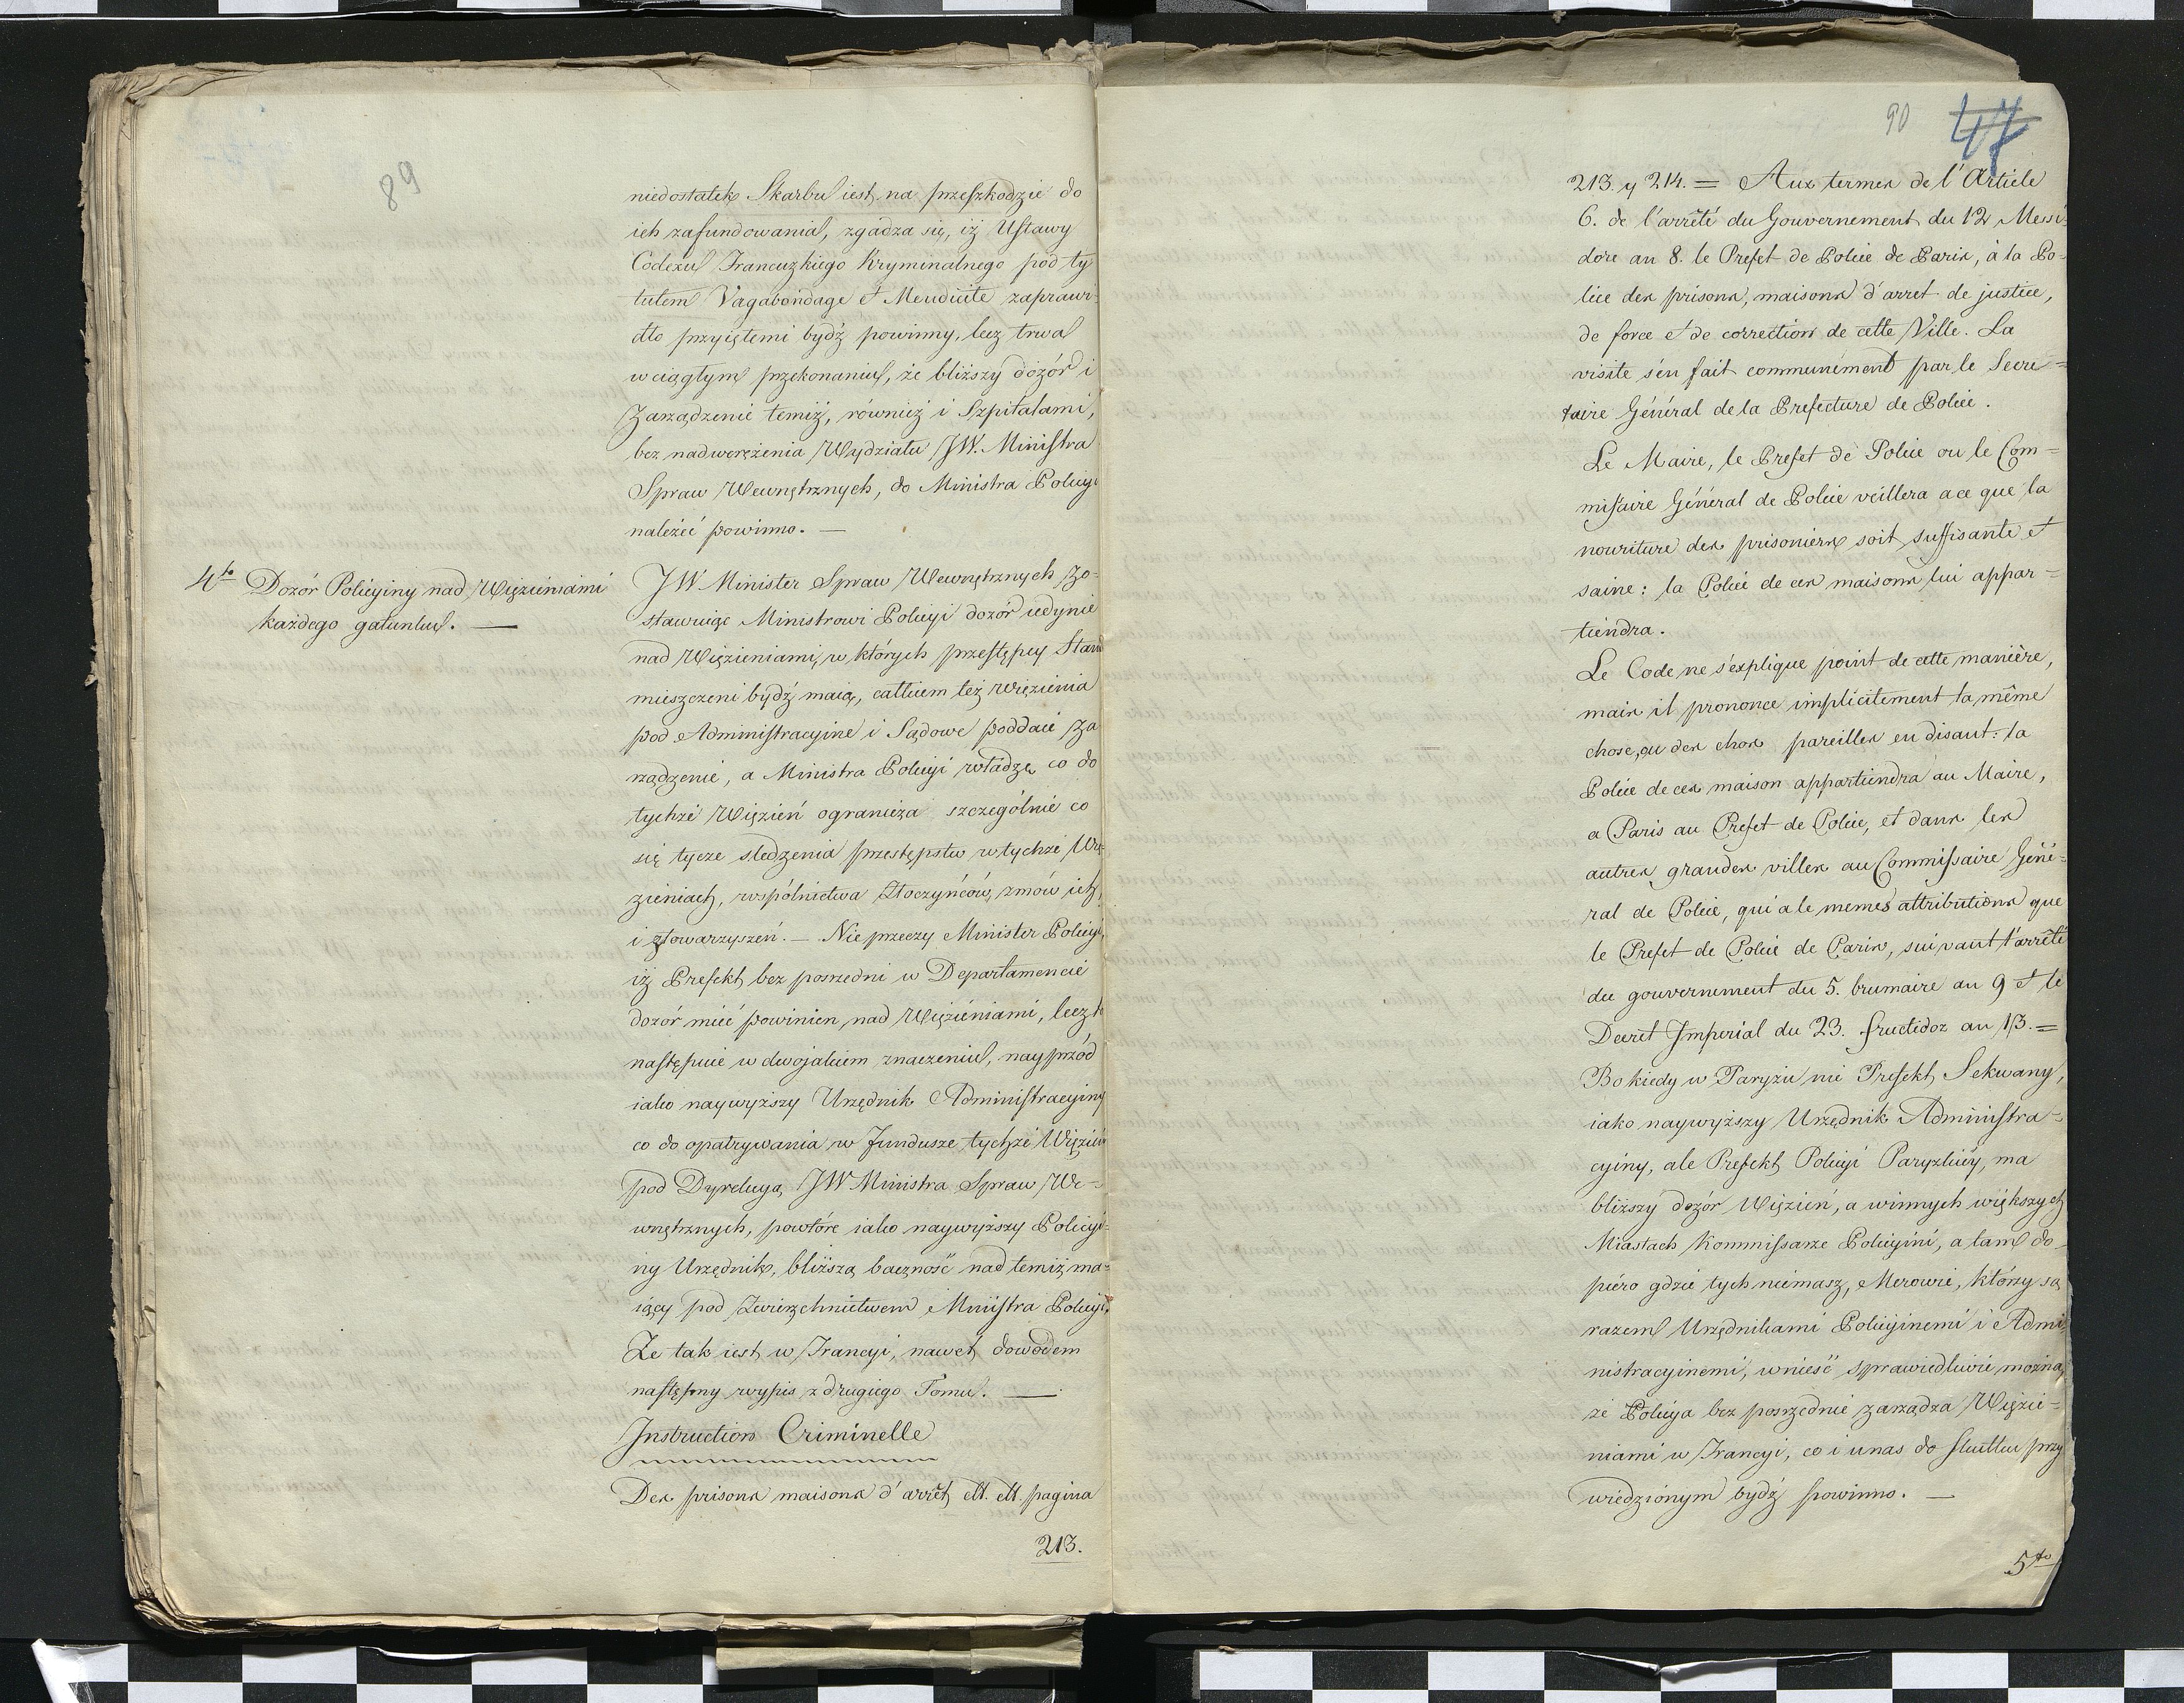 89
niedostatek Skarbu iest na przeszkodzie do
ich zafundowania, zgadza się, iż Ustawy
Codexu Francuzkiego Kryminalnego pod ty
tułem Vagabondage et Mendicite zaprawi-
dło przyiętemi bydź powinny, lecz trwa
w ciągłym przekonaniu, że bliższy dozór i
Zarządzenie temiż, równiéż i Szpitalami,
bez nadwerężenia Wydziału JW. Ministra
Spraw Wewnętrznych, do Ministra Policyi
należéć powinno. —
4to Dozór Policyiny nad Więzieniami
każdego gatunku. —
JW Minister Spraw Wewnętrznych zo-
stawuiąc Ministrowi Policyi dozór iedynie
nad Więzieniami, w których przestępcy Stanu
mieszczeni bydź maią, całkiem też więzienia
pod Administracyine i Sądowe poddaie za
rządzenie, a Ministra Policyi władzę co do
tychże Więzień ogranicza szczególnie co
się tycze sledzenia przestępstw w tychże Wię-
zieniach, wspólnictwa Złoczyńców, zmów ich,
i ztowarzyszeń. — Nie przeczy Minister Policyi,
iż Prefekt bez posrzedni w Departamencie
dozór mieć powinien nad Więzieniami, lecz to
następuie w dwojakiem znaczeniu, nayprzód
iako naywyższy Urzędnik Administracyiny
co do opatrywania w fundusze tychże Więzień
pod Dyrekcyą JW Ministra Spraw We-
wnętrznych, powtóre iako naywyższy Policyi-
ny Urzędnik, bliższą baczność nad temiż ma-
iący pod Zwierzchnictwem Ministra Policyi.
Że tak iest w Francyi, nawet dowodem
następny wypis z drugiego Tomu. —
Instruction Criminelle
Des prisons maisons d'arrêt ett. ett. pagina
213.
90
47
213. y 214. = Aux termes de l'Article
6. de l'arrêté du Gouvernement du 12 Messi-
dore an 8. le Prefet de Police de Paris, à la Po-
lice des prisons, maisons d'arret de justice,
de force et de correction de cette Ville. La
visite s'en fait communément par le Secre-
taire Général de la Prefecture de Police.
Le Maire, le Prefet de Police ou le Com-
missaire Général de Police veillera a ce que la
nouriture des prisoniers soit suffisante et
saine: la Police de ces maisons lui appar-
tiendra.
Le Code ne s'explique point de cette manière,
mais il prononce implicitement la même
chose, ou des chos pareilles en disant: la
Police de ces maison appartiendra au Maire,
a Paris au Prefet de Police, et dans les
autres grandes villes au Commissaire Géné-
ral de Police, qui a le memes attributions que
le Prefet de Police de Paris, suivant l'arrêté
du gouvernement du 5. brumaire an 9 et le
Decret Imperial du 23. fructidor an 13. =
Bo kiedy w Paryżu nie Prefekt Sekwany,
iako naywyższy Urzędnik Administra-
cyiny, ale Prefekt Policyi Paryzkiéy, ma
bliższy dozór Więzień, a winnych większych
Miastach Kommissarze Policyini, a tam do
piéro gdzie tych niémasz, Merowie, którzy są
razem Urzędnikami Policyinemi i Admi
nistracyinemi, wnieść sprawiedliwie można
że Policya bez posrzednie zarządza Więzie-
niami w Francyi, co i unas do skutku przy
wiedzionym bydź powinno. —
5to